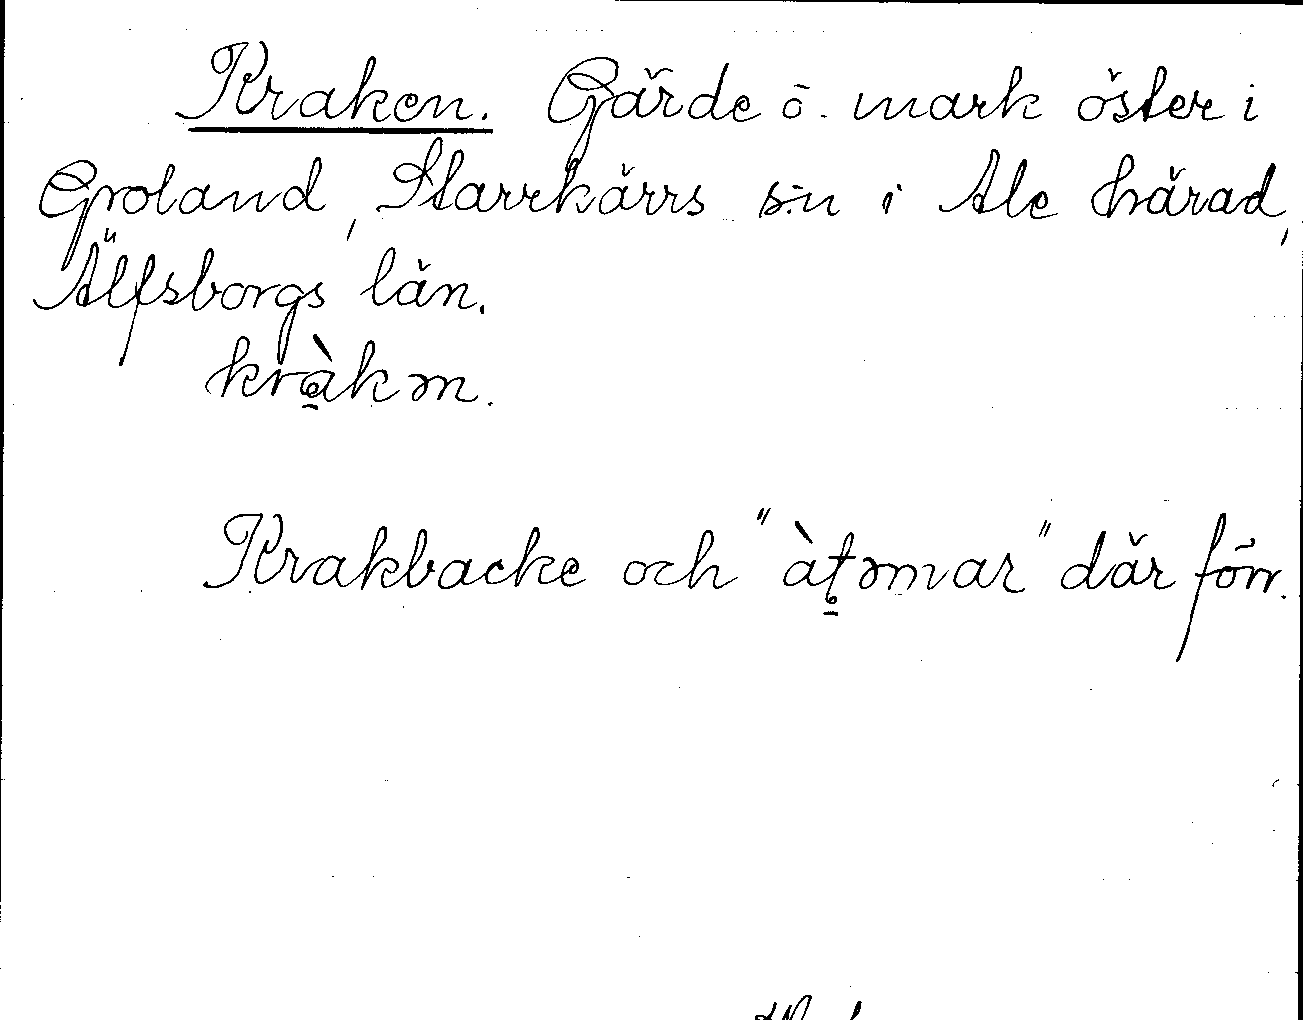 Kraken. Gärde o. mark öster i
Groland, Starrkärrs s:n i Ale härad,
Älfsborgs län.
kràkən.
Krakbacke och "àtəmar" där förr.